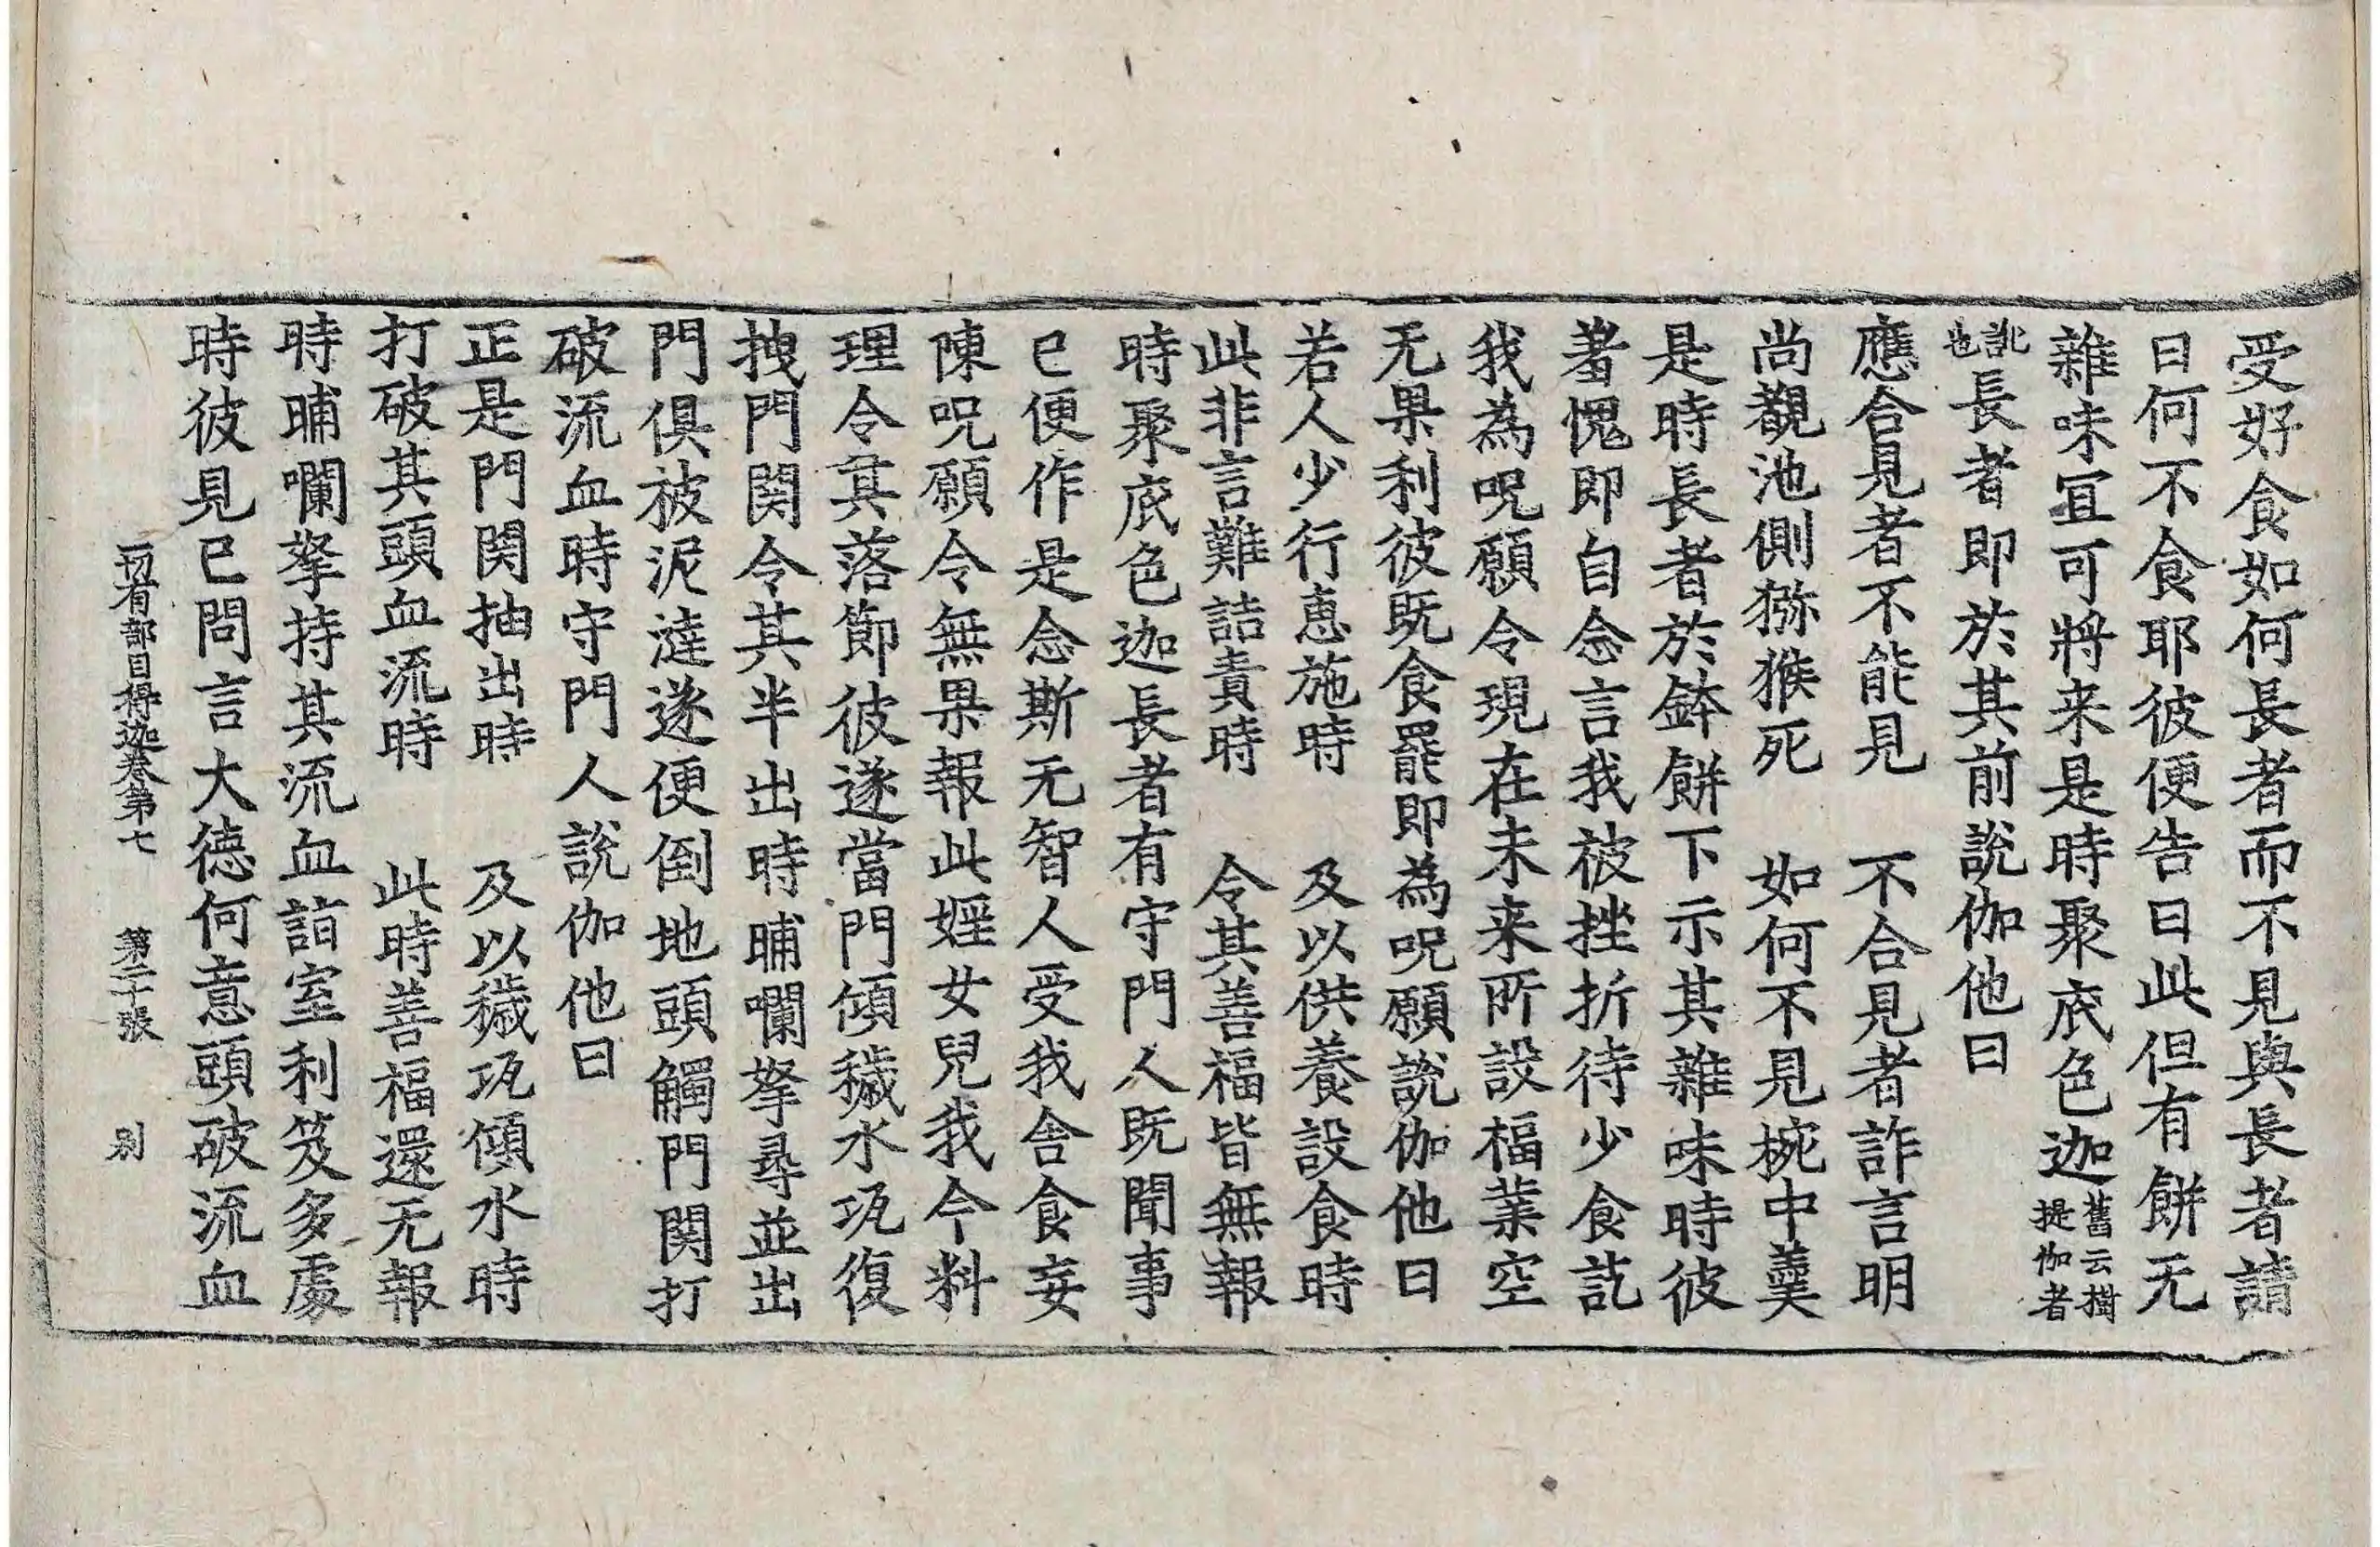 受好食如何長者而不見與長者請
曰何不食耶彼便告曰此但有餅无
雜味宜可將来是時聚底色迦舊云樹提伽者
訛也長者即於其前說伽他曰
應合見者不能見　不合見者詐言明
尚覩池側猕猴死　如何不見椀中羹
是時長者於鉢餅下示其雜味時彼
著愧即自念言我被挫折待少食訖
我為呪願令現在未来所設福業空
无果利彼既食罷即為呪願說伽他曰
若人少行恵施時　及以供養設食時
此非言難詰責時　令其善福皆無報
時聚底色迦長者有守門人既聞事
已便作是念斯无智人受我舍食妄
陳呪願令無果報此婬女兒我今料
理令其落節彼遂當門傾穢水瓨復
拽門関令其半出時晡囒拏尋並出
門俱被泥漣遂便倒地頭觸門関打
破流血時守門人說伽他曰
正是門関抽出時　及以穢瓨傾水時
打破其頭血流時　此時善福還无報
時晡囒拏持其流血詣室利笈多處
時彼見已問言大德何意頭破流血
一切有部目得迦卷第七　第二十張　別